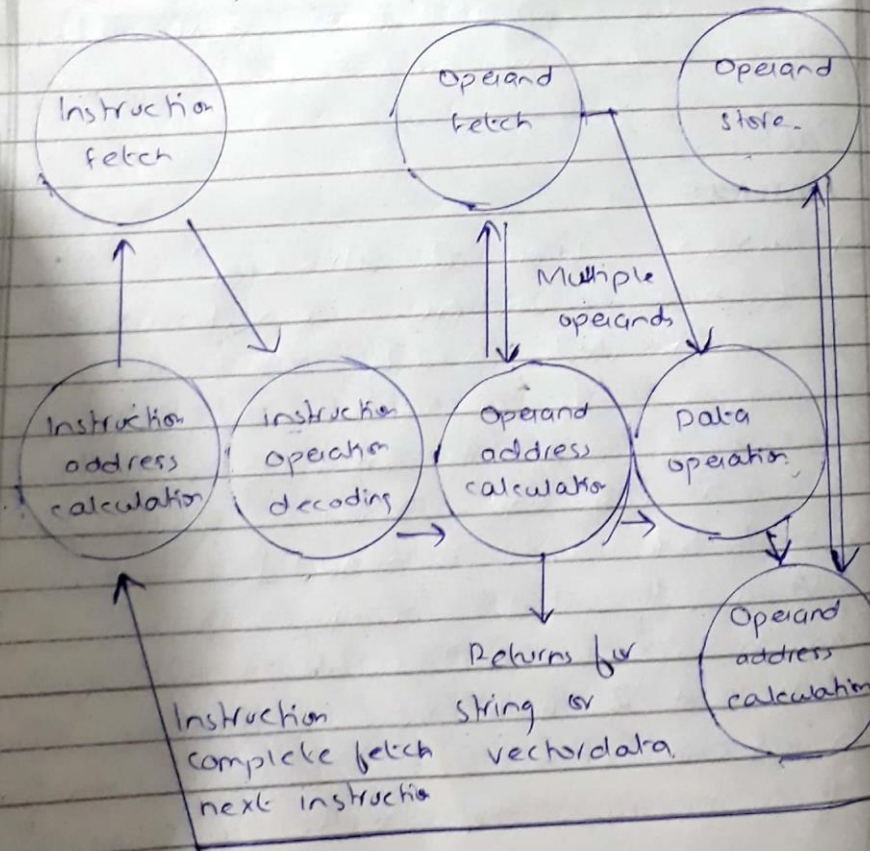 Instruction
fetch
Operand
fetch
Operand
store.
Multiple
operands
Instruction
address
calculation
instruction
operation
decoding
Operand
address
calculation
Data
operation
Operand
address
calculation
Returns for
string or
vector/data
Instruction
complete fetch
next instruction